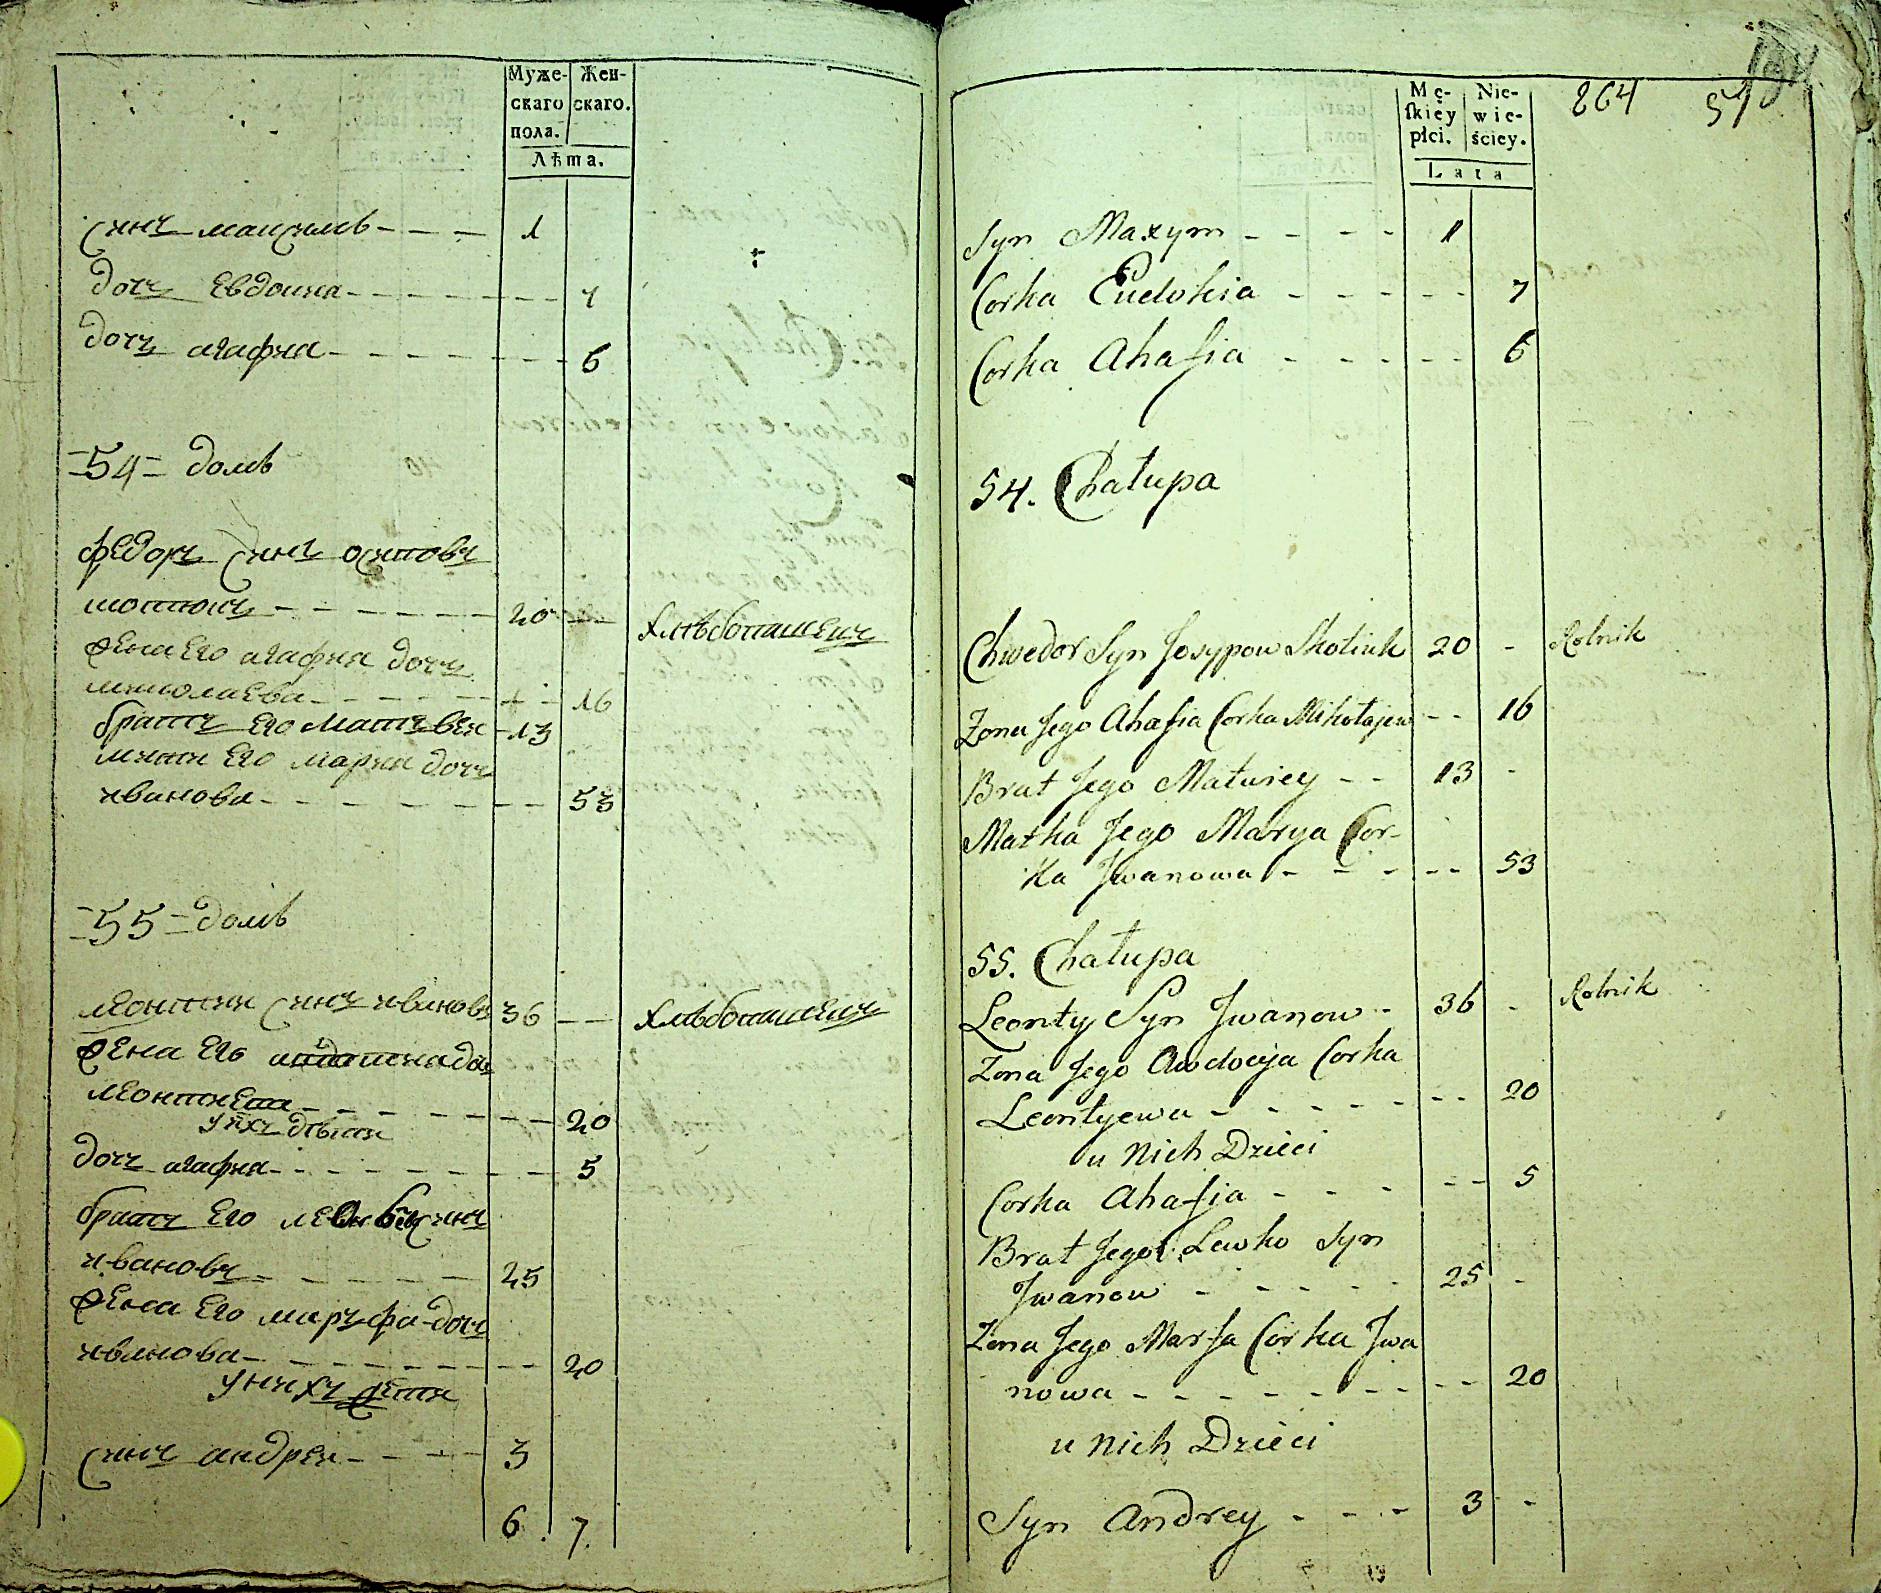 Муже-
скаго
пола.
Жен-
скаго.
Лѣта.
синъ максимъ - - - 1
дочь Евдокия - - - - - - - 7
дочь агафия - - - - - - - 6
54 домъ
федоръ синъ осиповъ
- - - - - - 20 - хлѣбопашецъ
жена Его агафия дочь
николаева - - - - 16
братъ Его Матвей - 13
мати Его мария дочь
иванова - - - - - - - 53
55 домъ
леонтии синъ ивановъ 36 - - хлѣбопашецъ
жена Его
леонтиева - - - - - - 20
у них дѣти
дочь агафия - - - - - - - 5
братъ Его синъ
ивановъ - - - - - 25
жена Его марфа дочь
иванова - - - - - - - 20
у нихъ дети
синъ андреи - - - - 3
6. 7.
864 57
Mę-
skiéy
płci.
Nie-
wie-
ściey.
Lata
Syn Maxym - - - - 1
Corka Eudokia - - - - - 7
Corka Ahafia - - - - - 6
54. Chałupa
Chwedor Syn Josypow Skotiuk 20 - Rolnik
Zona Jego Ahafia Corka Mikołajew - - 16
Brat Jego Matwiey - - 13 -
Matka Jego Marya Cor-
ka Jwanowa - - - - - 53
55. Chałupa
Leonty Syn Jwanow - 36 - Rolnik
Zona Jego Awdocja Corka
Leontyewa - - - - - - - 20
u Nich Dzieci
Corka Ahafia - - - - - 5
Brat Jego Lewko Syn
Jwanow - - - - 25 -
Zona Jego Marfa Corka Jwa
nowa - - - - - - - - - 20
u Nich Dzieci
Syn Andrey - - - 3 -